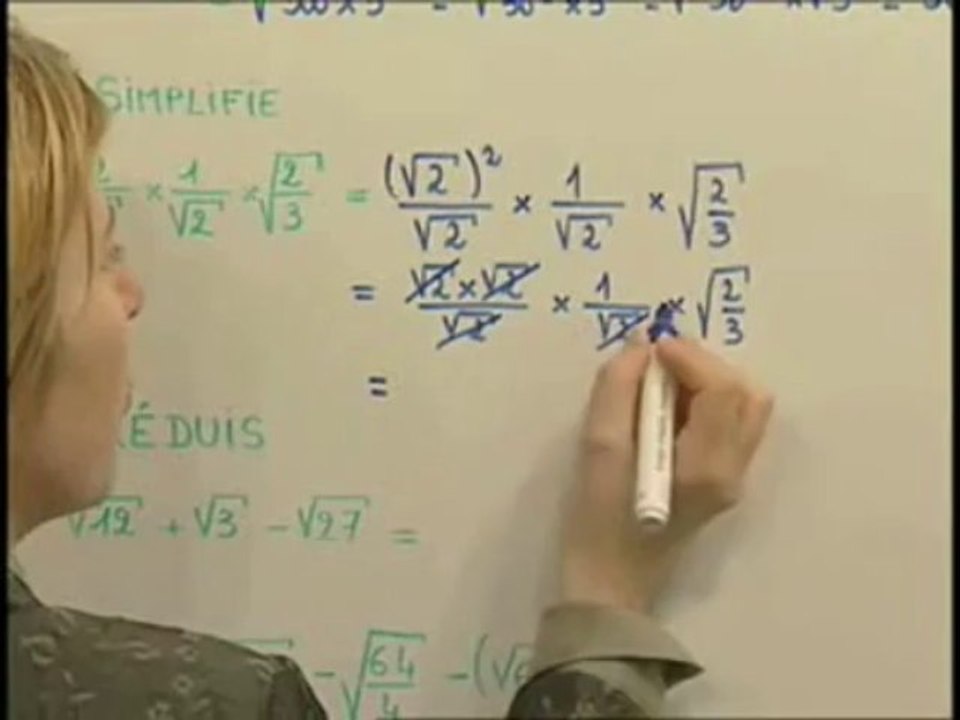 SIMPLIFIE
× 1/√2 × √(2/3) = (√2)²/√2 × 1/√2 × √(2/3)
= √2×√2/√2 × 1/√2 × √(2/3)
=
ÉDUIS
√12 + √3 - √27 =
- √(64/4) - (√